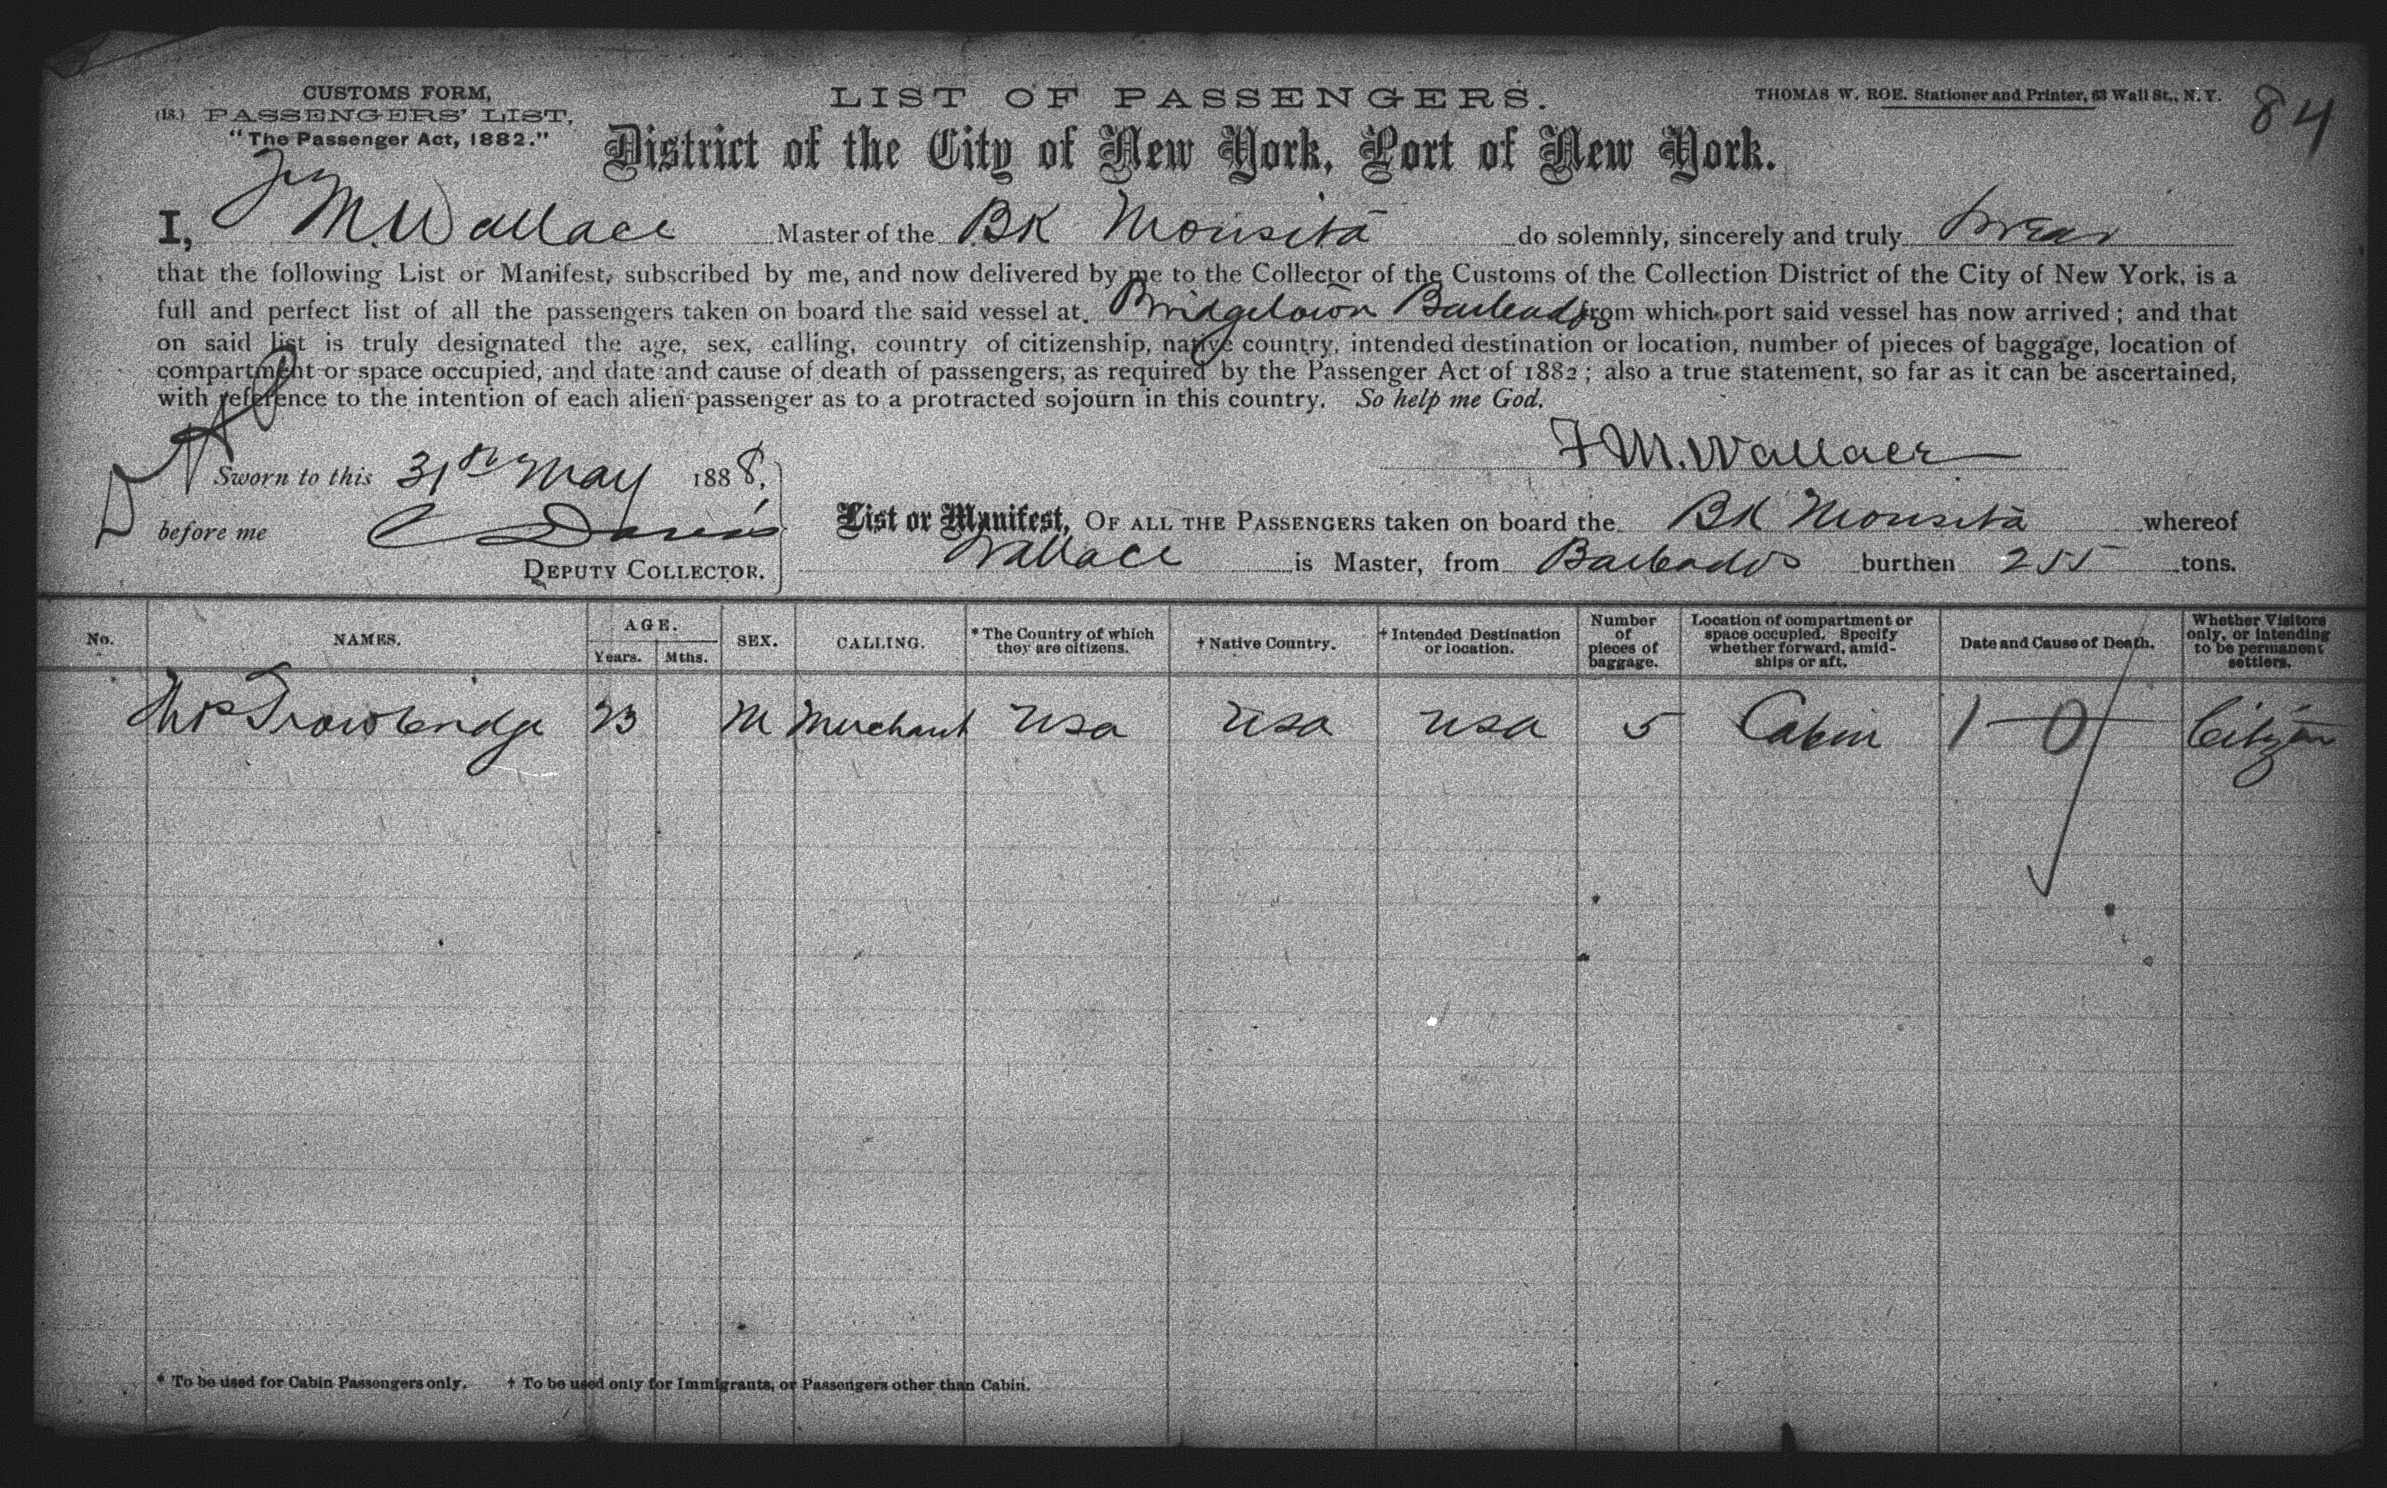 CUSTOMS FORM,
(18.) PASSENGERS' LIST,
"The Passenger Act, 1882."
LIST OF PASSENGERS.
THOMAS W. ROE. Stationer and Printer, 63 Wall St., N.Y.
84
District of the City of New York, Port of New York.
I, F M. Wallace Master of the BK Mousita do solemnly, sincerely and truly swear
that the following List or Manifest, subscribed by me, and now delivered by me to the Collector of the Customs of the Collection District of the City of New York, is a
full and perfect list of all the passengers taken on board the said vessel at Bridgetown Barbados from which port said vessel has now arrived; and that
on said list is truly designated the age, sex, calling, country of citizenship, native country, intended destination or location, number of pieces of baggage, location of
compartment or space occupied, and date and cause of death of passengers, as required by the Passenger Act of 1882; also a true statement, so far as it can be ascertained,
with reference to the intention of each alien passenger as to a protracted sojourn in this country. So help me God.
F M. Wallace
Sworn to this 31st May 1888,
before me C Davis
DEPUTY COLLECTOR.
List or Manifest, OF ALL THE PASSENGERS taken on board the BK Mousita whereof
Wallace is Master, from Barbados burthen 255 tons.
No. NAMES. AGE. Years. Mths. SEX. CALLING. * The Country of which they are citizens. † Native Country. † Intended Destination or location. Number of pieces of baggage. Location of compartment or space occupied. Specify whether forward, amidships or aft. Date and Cause of Death. Whether Visitors only, or intending to be permanent settlers.
Thos Trowbridge 23 M Merchant USA USA USA 5 Cabin 1 — 0 Citizen
* To be used for Cabin Passengers only. † To be used only for Immigrants, or Passengers other than Cabin.